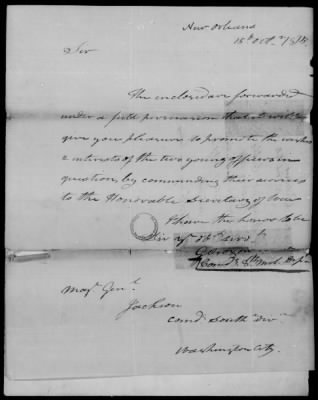 New Orleans
15th Octr
Sir
The enclosed are forwarded
under a full persuasion that it will
give you pleasure to promote the wishes
& interests of the two young officers in
question, by commending their services
to the Honorable Secretary of War
I have the honor to be
Sir yr obt Servt
Comdg
Majr Genl
Jackson
comdg South Divn
Washington City.